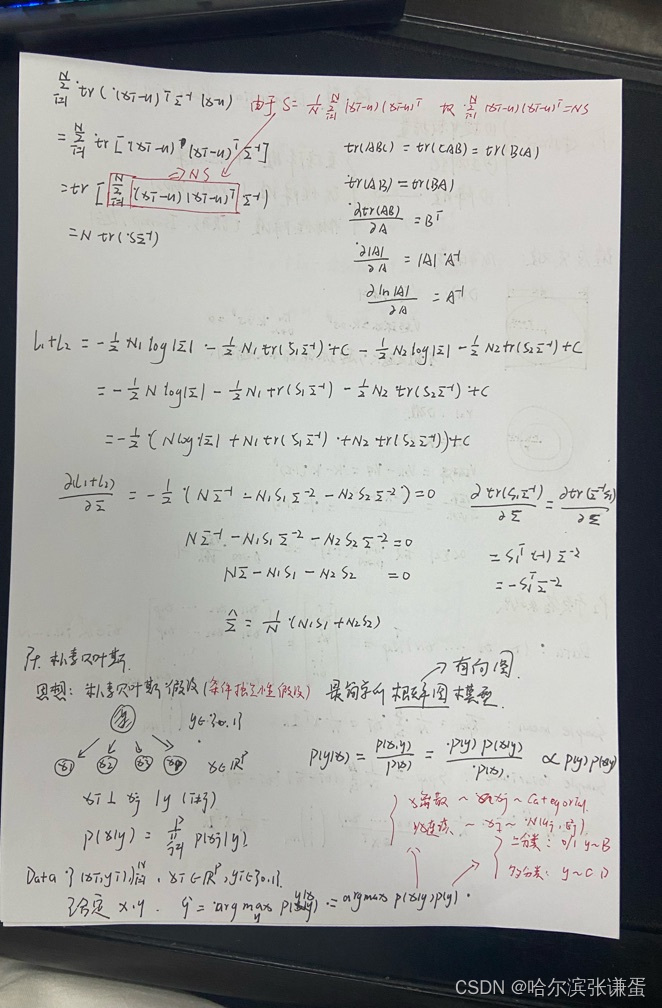 ∑_{i=1}^{N} tr((xi-μ)^T Σ^{-1} (xi-μ)) 由于 S = 1/N ∑_{i=1}^{N} (xi-μ)(xi-μ)^T 故 ∑_{i=1}^{N} (xi-μ)(xi-μ)^T = NS
= ∑_{i=1}^{N} tr[(xi-μ)(xi-μ)^T Σ^{-1}]
tr(ABC) = tr(CAB) = tr(BCA)
⇒ NS
= tr[∑_{i=1}^{N} (xi-μ)(xi-μ)^T Σ^{-1}]
tr(AB) = tr(BA)
∂tr(AB)/∂A = B^T
= N tr(SΣ^{-1})
∂|A|/∂A = |A| A^{-1}
∂ln|A|/∂A = A^{-1}
L1+L2 = -1/2 N1 log|Σ| - 1/2 N1 tr(S1Σ^{-1}) + C - 1/2 N2 log|Σ| - 1/2 N2 tr(S2Σ^{-1}) + C
= -1/2 N log|Σ| - 1/2 N1 tr(S1Σ^{-1}) - 1/2 N2 tr(S2Σ^{-1}) + C
= -1/2 (N log|Σ| + N1 tr(S1Σ^{-1}) + N2 tr(S2Σ^{-1})) + C
∂(L1+L2)/∂Σ = -1/2 (NΣ^{-1} - N1S1Σ^{-2} - N2S2Σ^{-2}) = 0 ∂tr(S1Σ^{-1})/∂Σ = ∂tr(Σ^{-1}S1)/∂Σ
NΣ^{-1} - N1S1Σ^{-2} - N2S2Σ^{-2} = 0
= S1^T (-1) Σ^{-2}
NΣ - N1S1 - N2S2 = 0
= -S1^T Σ^{-2}
Σ̂ = 1/N (N1S1 + N2S2)
朴素贝叶斯
有向图
思想: 朴素贝叶斯假设(条件独立性假设) 最简单的概率图模型
y∈{0,1}
x1 x2 x3 xp x∈R^p
P(y|x) = P(x,y)/P(x) = P(y)P(x|y)/P(x) ∝ P(y)P(x|y)
xi ⊥ xj | y (i≠j)
x离散 ~ xj ~ Category
P(x|y) = ∏_{j=1}^{p} P(xj|y)
x连续 ~ xj ~ N(μj, σj)
二分类: 0/1 y~B
Data: {(xi,yi)}_{i=1}^{N}, xi∈R^p, yi∈{0,1}
多分类: y~C D
给定 x.y. ŷ = argmax_y P(y|x) = argmax P(x|y)P(y)
CSDN @哈尔滨张谦蛋